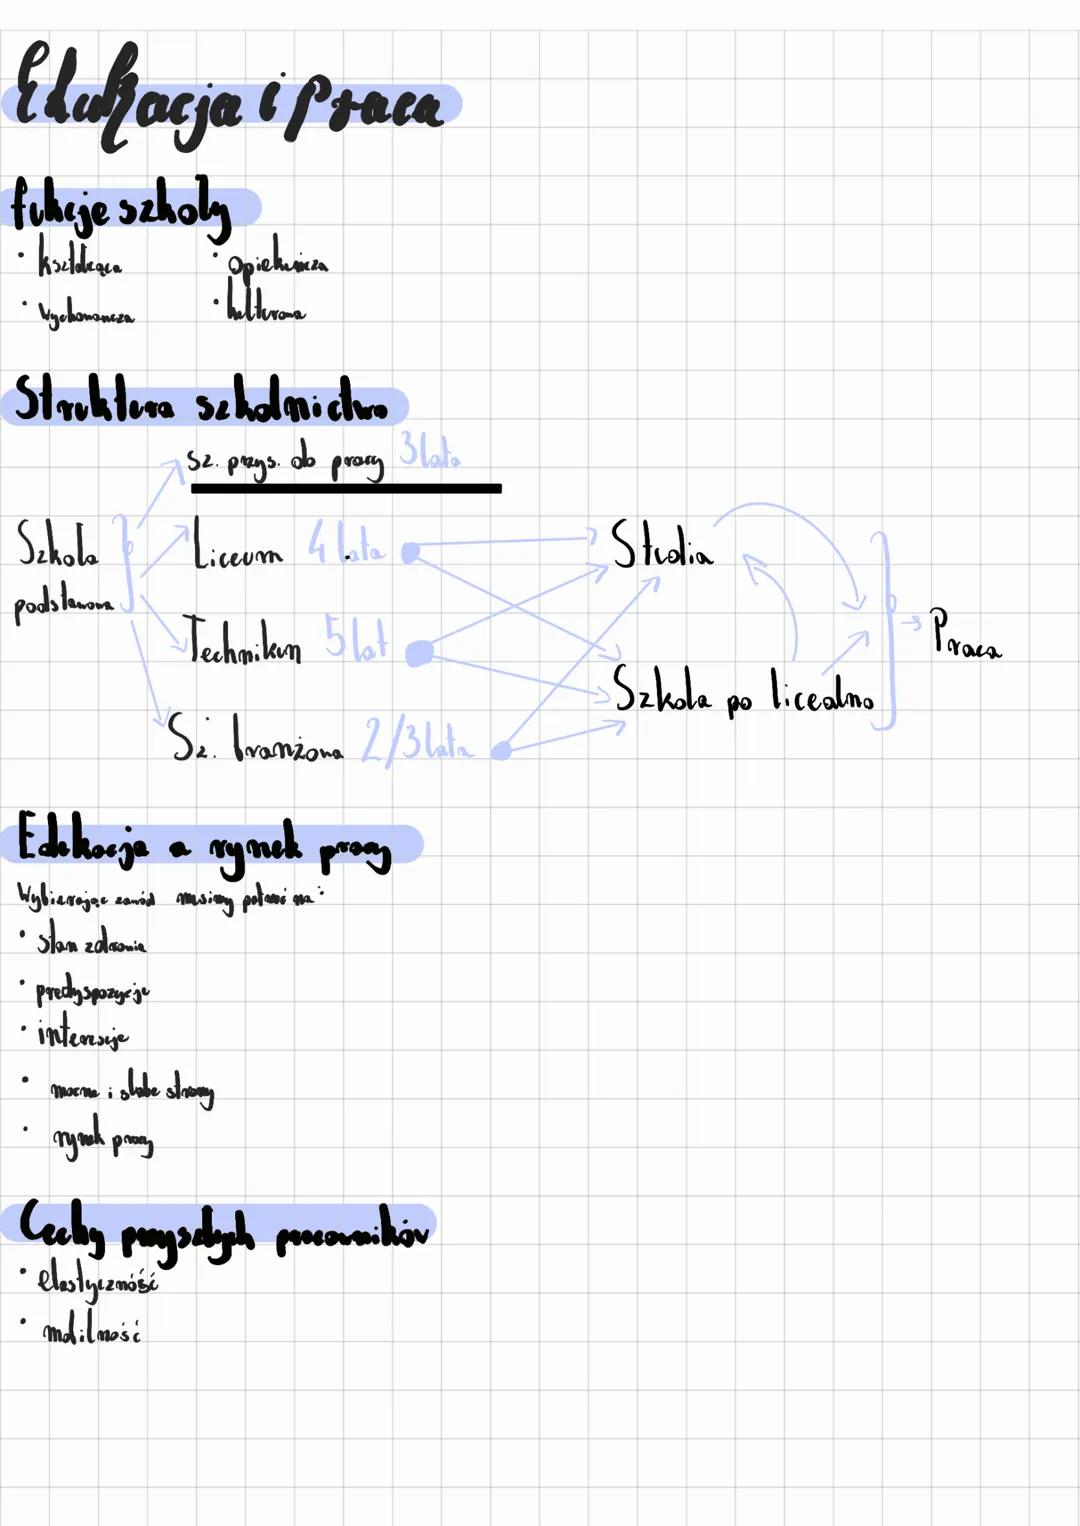 Edukacja i Praca
fukcje szkoły
· kształcąca
· opiekuńcza
· wychowawcza
· kulturowa
Struktura szkolnictwo
sz. przys. do pracy 3 lata
Szkoła
podstawowa
Liceum 4 lata
Studia
Technikum 5 lat
Praca
Szkoła po licealna
Sz. branżowa 2/3 lata
Edukacja a rynek pracy
Wybierając zawód musimy patrzeć na:
· stan zdrowia
· predyspozycje
· interesuje
· mocne i słabe strony
· rynek pracy
Cechy przyszłych pracowników
· elastyczność
· mobilność